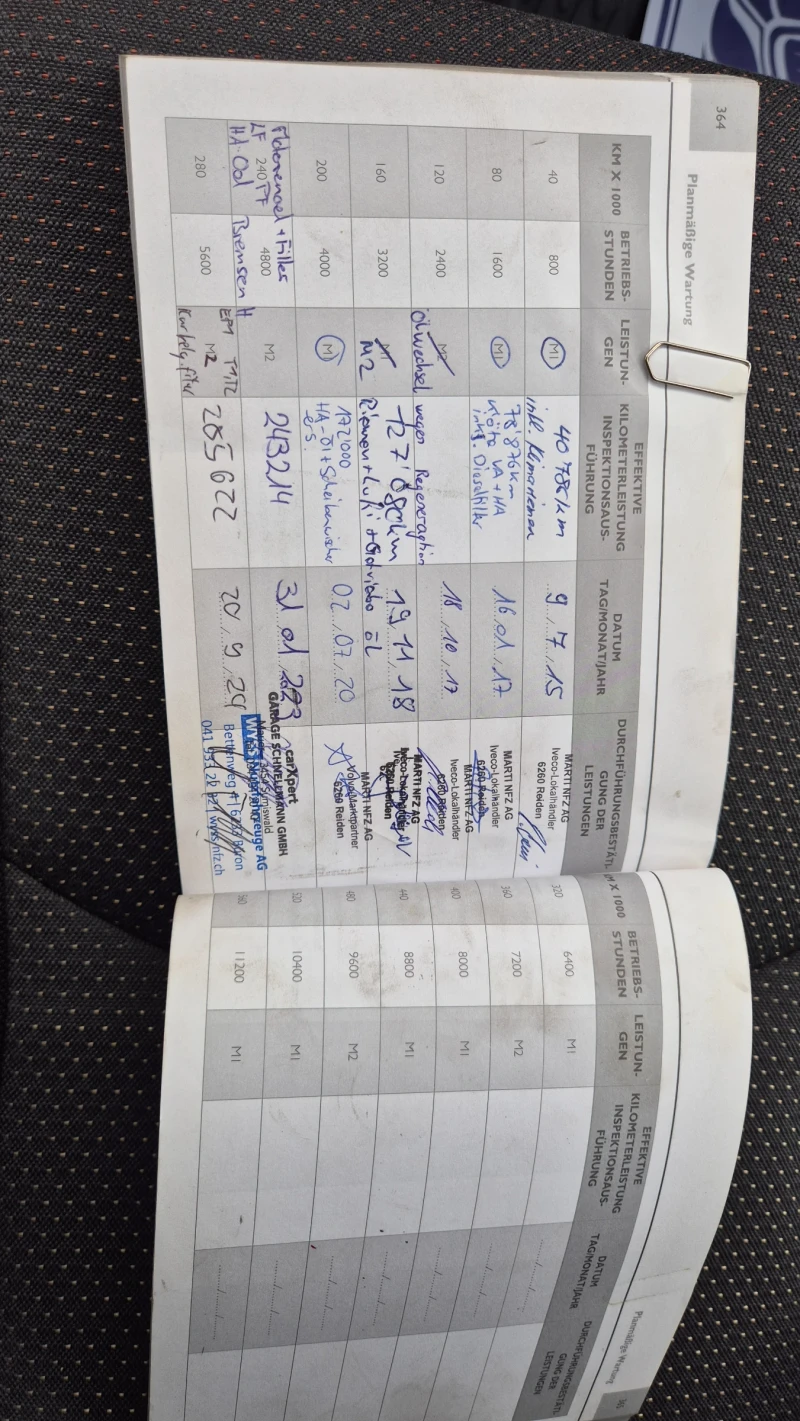 364
Planmäßige Wartung
KM X 1000
BETRIEBS-
STUNDEN
LEISTUN-
GEN
EFFEKTIVE
KILOMETERLEISTUNG
INSPEKTIONSAUS-
FÜHRUNG
DATUM
TAG/MONAT/JAHR
DURCHFÜHRUNGSBESTÄTI-
GUNG DER
LEISTUNGEN
40
800
M1
40786 km
inkl.
9 / 7 / 15
MARTI NFZ AG
Iveco-Lokalhändler
6260 Reiden
80
1600
M1
78'876 km
VA + HA
inkl. Dieselfilter
16.01.17
MARTI NFZ AG
Iveco-Lokalhändler
6260 Reiden
MARTI NFZ AG
120
2400
M2
Ölwechsel wegen Regeneration
18 / 10 / 17
Iveco-Lokalhändler
6260 Reiden
MARTI NFZ AG
160
3200
M1
M2
127'080 km
Riemen + Lufi + Getriebe ÖL
19 11 18
Iveco-Lokalhändler
6260 Reiden
200
4000
M1
172'000
HA-Öl + Scheibenwischer
ers.
02 / 07 / 20
MARTI NFZ AG
Volvo-Marktpartner
6260 Reiden
Motorenoel + Filter
LF 240 PF
HA-Oel Bremsen H
4800
M2
243214
31 01 2023
carXpert
GARAGE SCHWELLMANN GMBH
280
5600
M2
285622
20 / 9 / 24
WYSS Nutzfahrzeuge AG
Planmäßige Wartung
M X 1000
BETRIEBS-
STUNDEN
LEISTUN-
GEN
EFFEKTIVE
KILOMETERLEISTUNG
INSPEKTIONSAUS-
FÜHRUNG
DATUM
TAG/MONAT/JAHR
DURCHFÜHRUNGSBESTÄTI-
GUNG DER
LEISTUNGEN
320
6400
M1
360
7200
M2
400
8000
M1
440
8800
M1
480
9600
M2
520
10400
M1
560
11200
M1